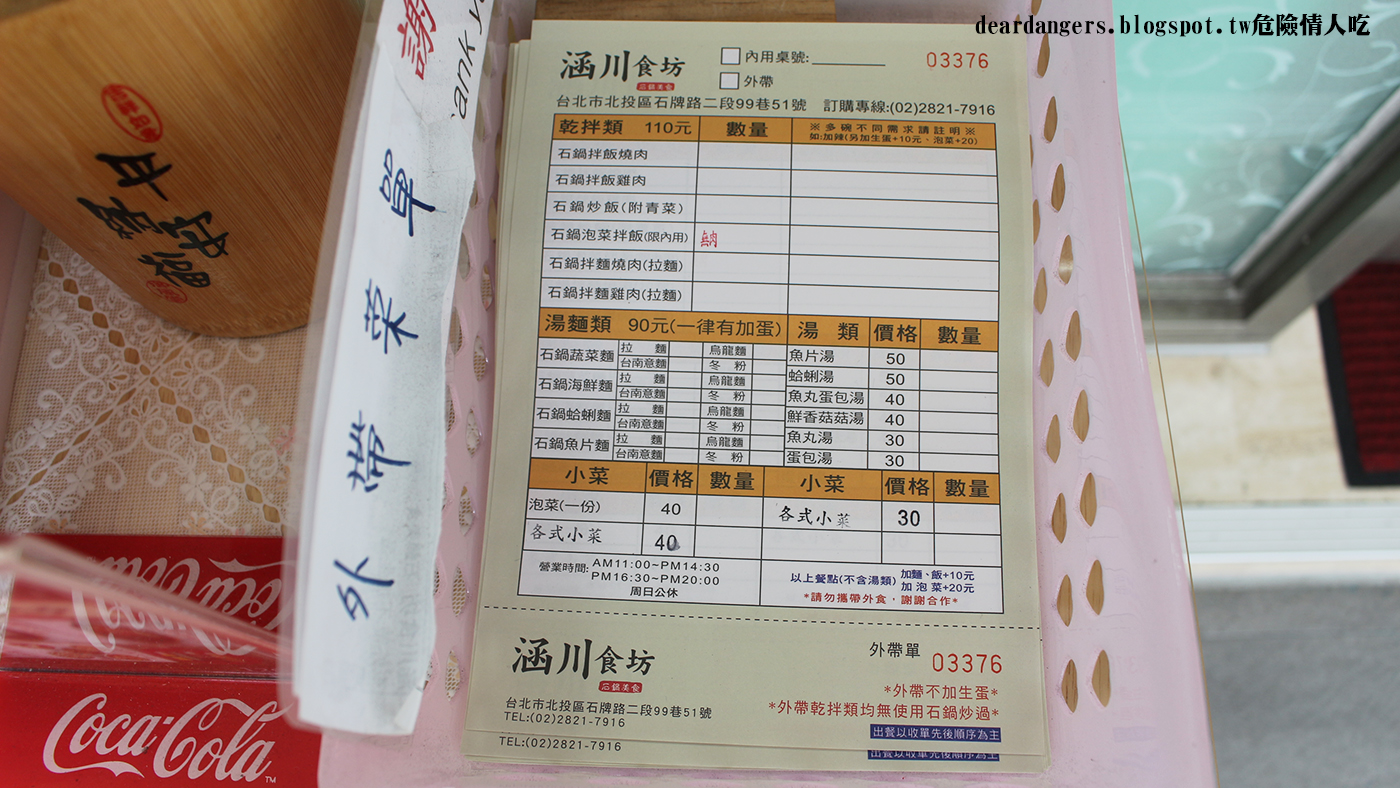 deardangers.blogspot.tw危險情人吃
謝
ank y
外帶菜單
涵川食坊
石鍋美食
內用桌號:
外帶
03376
台北市北投區石牌路二段99巷51號 訂購專線:(02)2821-7916
乾拌類 110元 數量 ※多碗不同需求請註明※
如:加辣(另加生蛋+10元、泡菜+20)
石鍋拌飯燒肉
石鍋拌飯雞肉
石鍋炒飯(附青菜)
石鍋泡菜拌飯(限內用) 無肉
石鍋拌麵燒肉(拉麵)
石鍋拌麵雞肉(拉麵)
湯麵類 90元(一律有加蛋) 湯類 價格 數量
石鍋蔬菜麵 拉麵 烏龍麵
台南意麵 冬粉
石鍋海鮮麵 拉麵 烏龍麵
台南意麵 冬粉
石鍋蛤蜊麵 拉麵 烏龍麵
台南意麵 冬粉
石鍋魚片麵 拉麵 烏龍麵
台南意麵 冬粉
魚片湯 50
蛤蜊湯 50
魚丸蛋包湯 40
鮮香菇菇湯 40
魚丸湯 30
蛋包湯 30
小菜 價格 數量 小菜 價格 數量
泡菜(一份) 40 各式小菜 30
各式小菜 40
營業時間: AM11:00~PM14:30
PM16:30~PM20:00
周日公休
以上餐點(不含湯類) 加麵、飯+10元
加泡菜+20元
*請勿攜帶外食，謝謝合作*
涵川食坊
石鍋美食
外帶單 03376
台北市北投區石牌路二段99巷51號
TEL:(02)2821-7916
*外帶不加生蛋*
*外帶乾拌類均無使用石鍋炒過*
出餐以收單先後順序為主
TEL:(02)2821-7916
出餐以收單先後順序為主
Coca-Cola
Coca-Cola TM